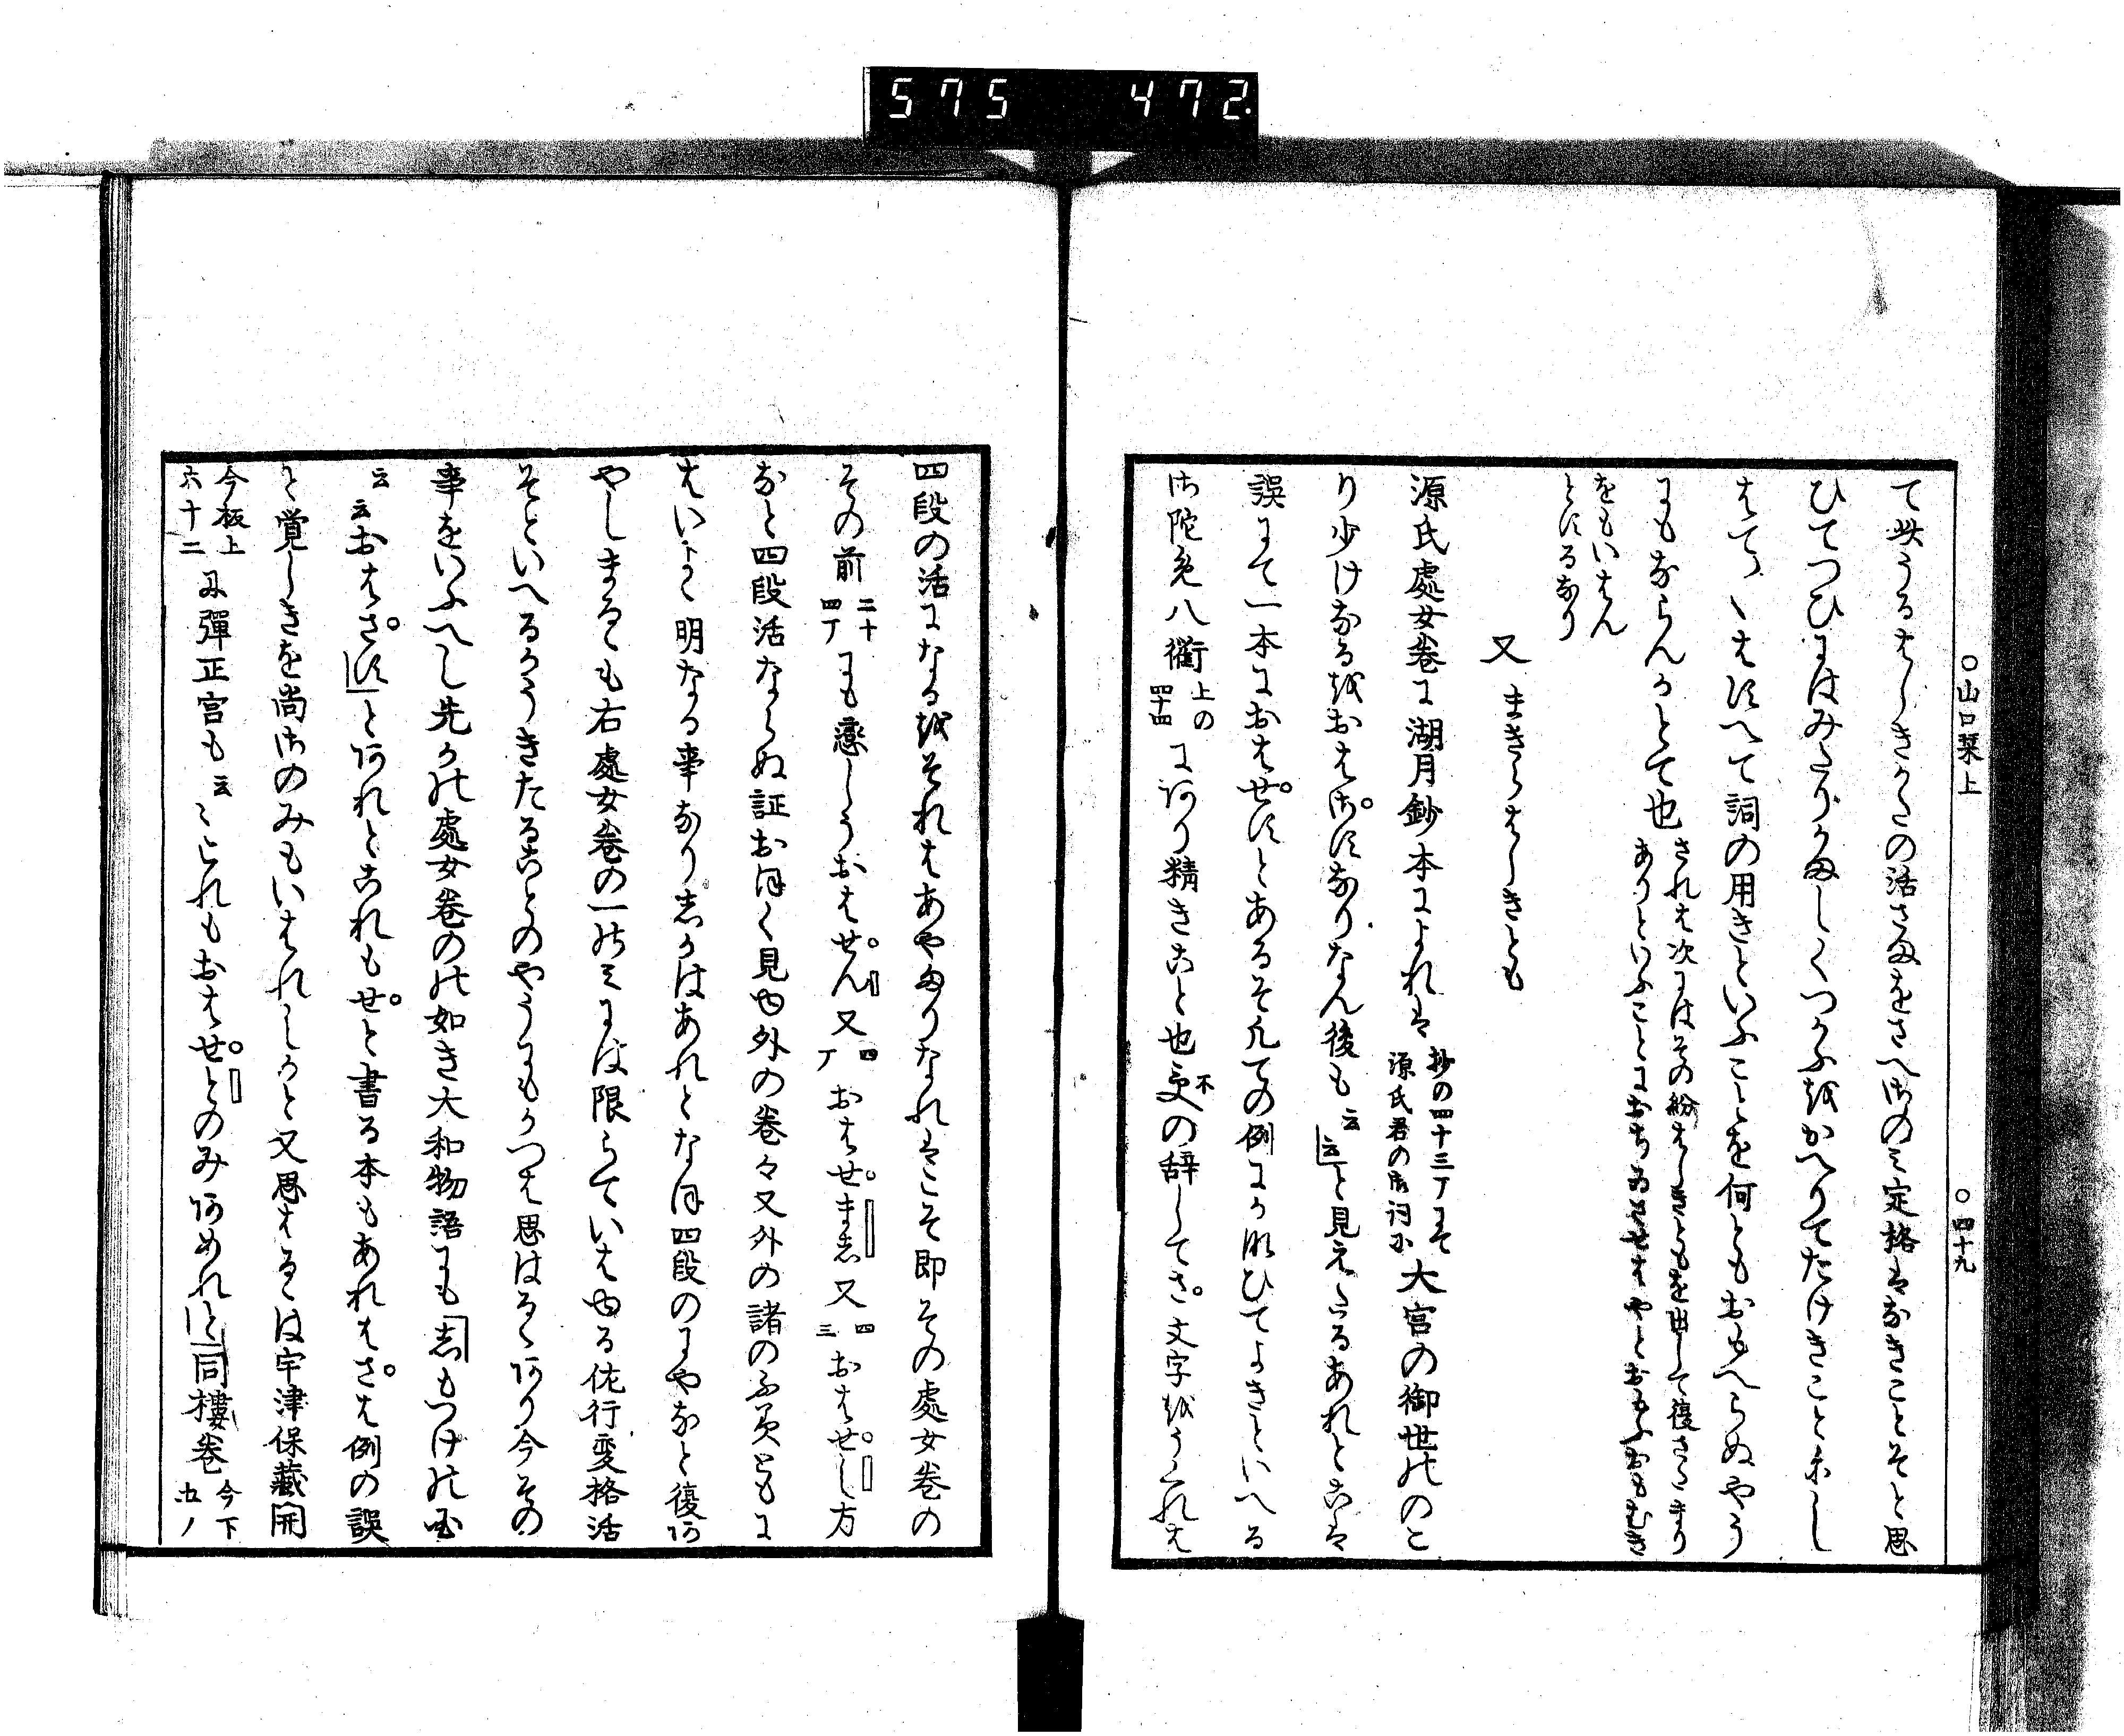 575 472
○山口栞上 ○四十九
て紫うるはしきかたの活さまをさへ御のみ定格はなきことそと思
ひてつひにはみたりかましくつかふをかへりてたけきことにし
はてゝはすへて詞の用きといふことを何ともおもへらぬやう
にもならんかとて也
されは次にはその紛はしきともを出して復さゝまり
ありといふことにおちゐさせはやとおもふおもむき
をもいはん
とするなり
又 まきらはしきとも
源氏處女巻に湖月鈔本によれは
抄の四十三丁にて
源氏君の御詞に
大宮の御世ののこ
り少けなるをおはさすなりなん後も云云と見えたるあれとこは
誤にて一本におはせすとあるそ凡ての例にかなひてよきといへる
御陀免八衢
上の
四十四
にあり精きこと也
不の辞してさ文字をうくれは
四段の活になるをそれはあやまりなれはこそ即その處女巻の
その前
二十
四丁
にも戀しうおはせん又
四
丁
おはせまし又
四
三
おはせし方
なと四段活ならぬ証おほく見ゆ外の巻々又外の諸のふみともに
はいよゝ明なる事なりしかはあれとなほ四段のにやなと復あ
やしまるゝも右處女巻の一のみには限らていはゆる佐行変格活
そといへるかうきたることのやうにもかつは思はるゝあり今その
事をいふへし先かの處女巻の如き大和物語にも「志もつけの国
云云おはさす」とあれとこれもせと書る本もあれはさは例の誤
と覚しきを尚御のみもいはれしかと又思はるゝは宇津保藏開
今板上
六十二
に彈正宮も云々これもおはせとのみあめれと」同樓巻
今下
五ノ